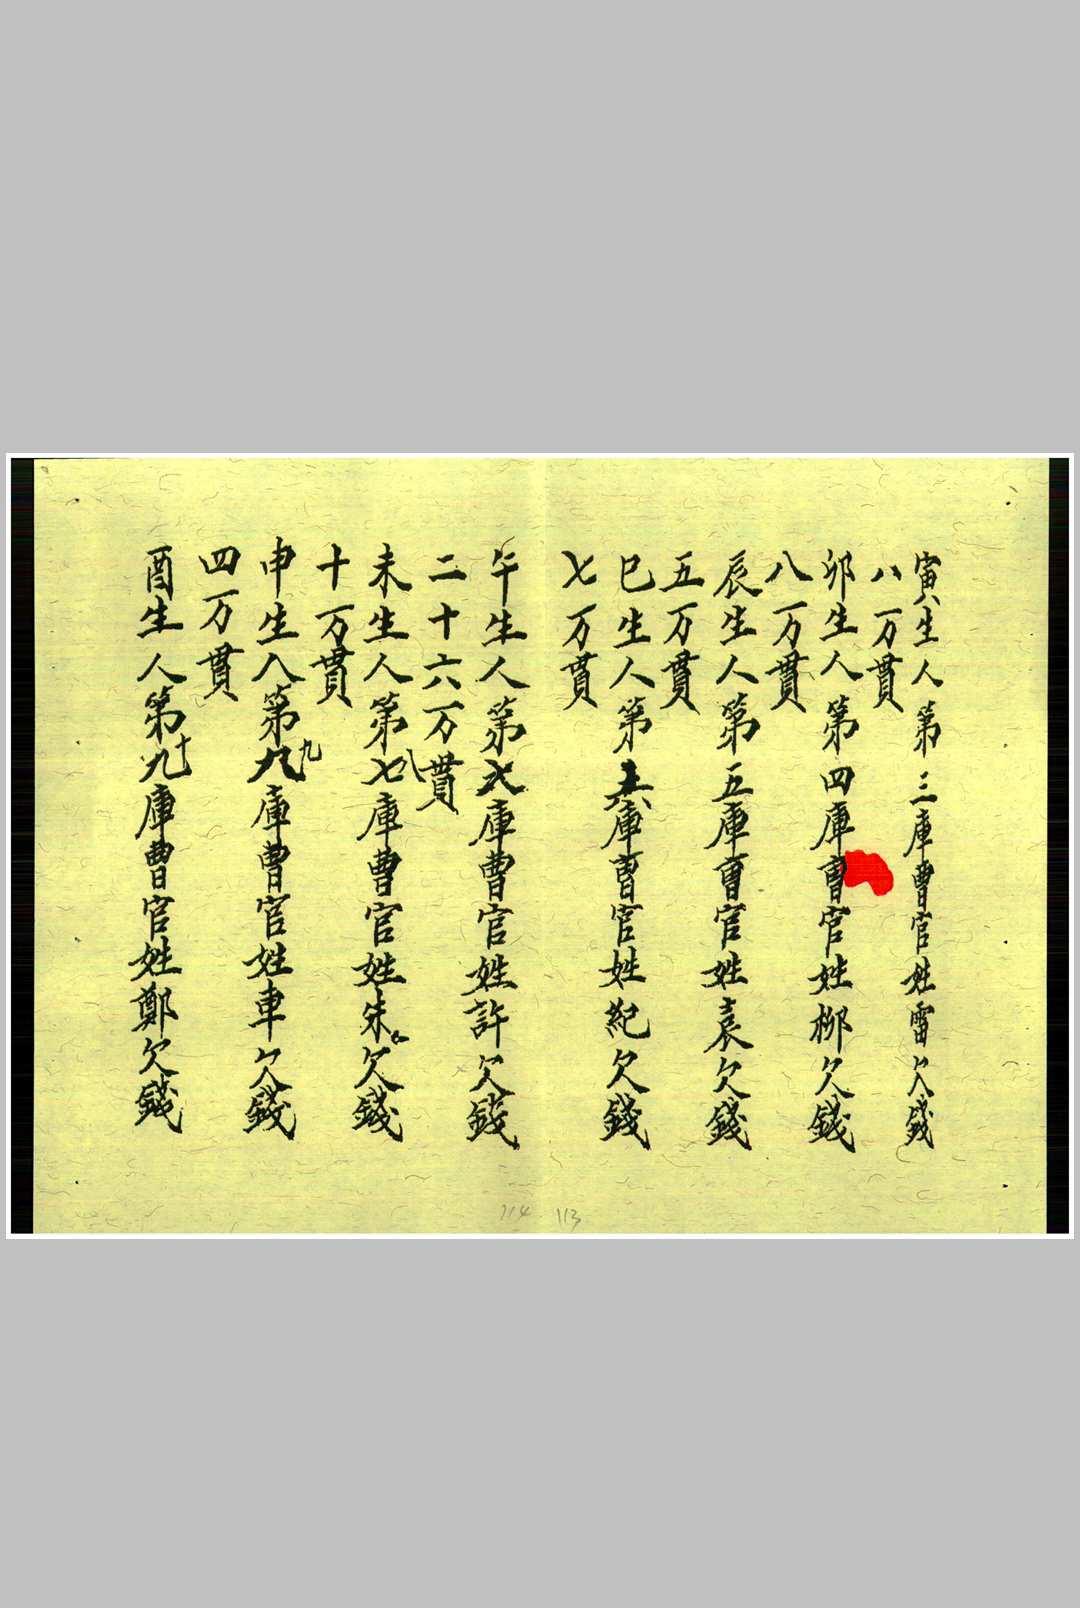 寅生人第三庫曹官姓雷欠錢
八万貫
卯生人第四庫曹官姓柳欠錢
八万貫
辰生人第五庫曹官姓袁欠錢
五万貫
巳生人第六庫曹官姓紀欠錢
七万貫
午生人第七庫曹官姓許欠錢
二十六万貫
未生人第七八庫曹官姓朱欠錢
十万貫
申生人第九九庫曹官姓車欠錢
四万貫
酉生人第九十庫曹官姓鄭欠錢
114 113